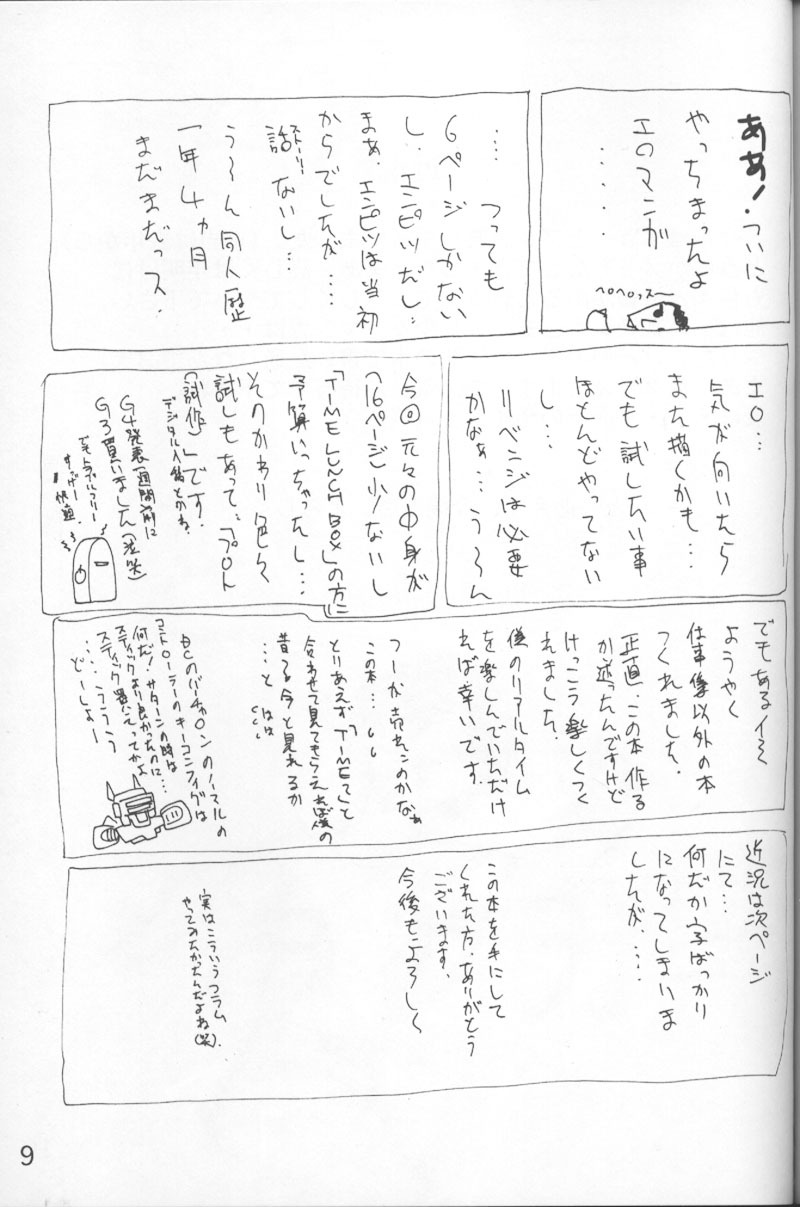 ああ!ついに
やっちまったよ
エロマンガ
・・・・・
ペロペロッス〜
… つっても
6ページしかない
し、エンピツだし…
まぁ、エンピツは当初
からでしたが……
ストーリー
話ないし…
う〜ん同人歴
一年4ヵ月
まだまだっス.
エロ…
気が向いたら
また描くかも…
でも試したい事
ほとんどやってない
し…
リベンジは必要
かなぁ…う〜ん
今回元々の中身が
(16ページ)少ないし
「TIME LUNCH BOX」の方に
予算いっちゃったし…
そのかわり色々
試しもあって…「プロト
(試作)」です.
デジタル入稿とかね.
G4発表一週間前に
G3買いました(泣笑)
でもトラブルフリー
すっげー
快適.
でもあるイミ
ようやく
仕事像以外の本
つくれました.
正直、この本作る
か迷ったんですけど
けっこう楽しくつく
れました.
僕のリアルタイム
を楽しんでいただけ
れば幸いです.
つーか売れんのかなぁ
この本…
とりあえず「TIME」と
合わせて見てもらえれば僕の
昔る今と見れるか
…と はは
DCのバーチャロンのノーマルの
コントローラーのキーコンフィグは
何だ!サターンの時は
スティックより良かったのに…
スティック買えってかよ
……うううう
どーしよー
近況は次ページ
にて…
何だか字ばっかり
になってしまいま
したが、……
この本を手にして
くれた方、ありがとう
ございます.
今後もよろしく
実はこういうコラム
やってみたかったんだよね(笑).
9